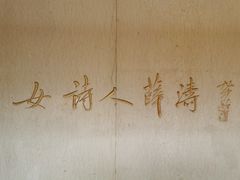 女詩人薛濤